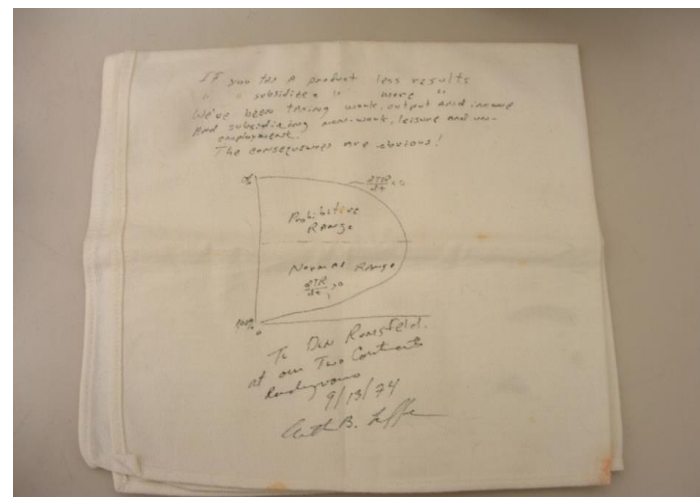 If you tax a product less results
" " subsidize " " more "
We've been taxing work, output and income
and subsidizing non-work, leisure and un-
employment.
The consequences are obvious!
<0
Prohibitive
Range
Normal Range
dTR/dt >0
To Don Rumsfeld.
at our Two Continents
Rendezvous
9/13/74
Arthur B. Laffer